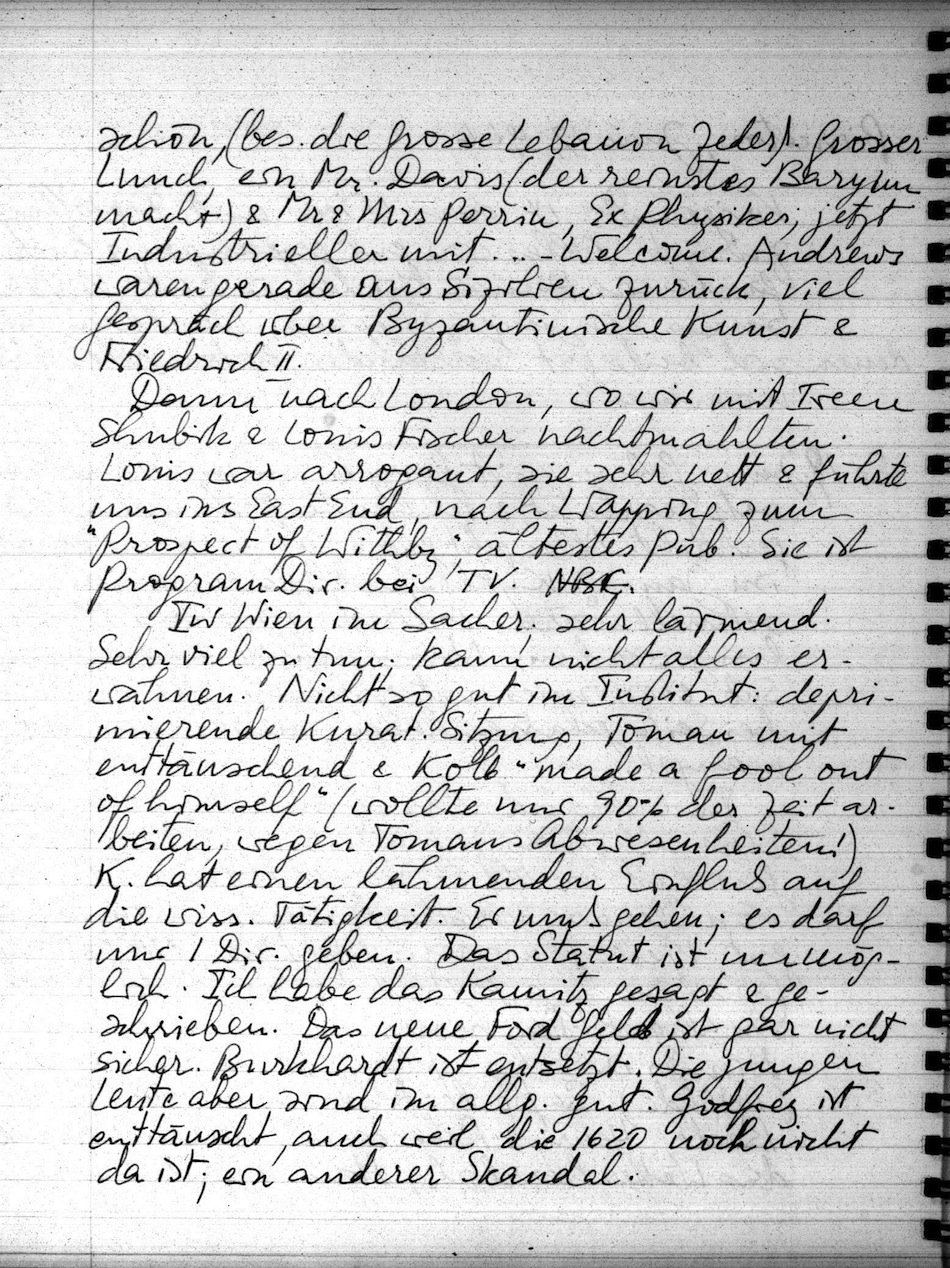 schön, (bes. die grosse Lebanon Zeder). Grosser
Lunch, ein Mr. Davis (der reinstes Baryum
macht) & Mr & Mrs Perrin, Ex Physiker, jetzt
Industrieller mit ... - Welcome. Andrews
waren gerade aus Sizilien zurück, viel
Gespräch über Byzantinische Kunst &
Friedrich II.
Dann nach London, wo wir mit Irene
Shubik & Louis Fischer nachtmahlten.
Louis war arrogant, sie sehr nett & führte
uns ins East End, nach Wapping zum
"Prospect of Withby", ältestes Pub. Sie ist
Program Dir. bei TV. NBC.
In Wien im Sacher, sehr lärmend.
Sehr viel zu tun, kann nicht alles er-
wähnen. Nicht so gut im Institut: depri-
mierende Kurat. Sitzung, Toman mit
enttäuschend & Kolb "made a fool out
of himself" (wollte nur 90% der Zeit ar-
beiten, wegen Tomans Abwesenheiten!)
K. hat einen lähmenden Einfluß auf
die wiss. Tätigkeit. Er muß gehen; es darf
nur 1 Dir. geben. Das Statut ist unmög-
lich. Ich habe das Kamitz gesagt & ge-
schrieben. Das neue Ford Geld ist gar nicht
sicher. Burkhardt ist entsetzt. Die jungen
Leute aber sind im allg. gut. Godfrey ist
enttäuscht, auch weil die 1620 noch nicht
da ist; ein anderer Skandal.